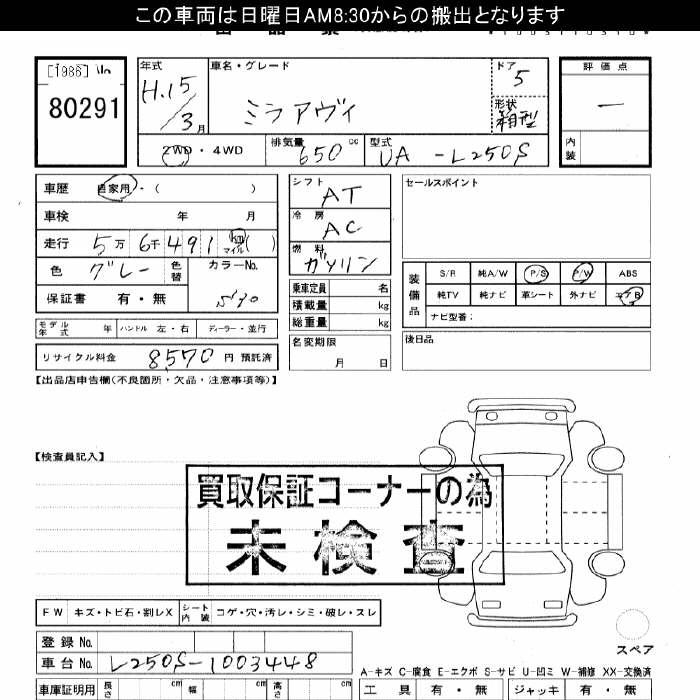 この車両は日曜日AM8:30からの搬出となります
[1986]
80291
年式 H.15/3月
車名・グレード ミラアヴィ
ドア 5
形状 箱型
評価点 ―
内装
2WD・4WD
排気量 650cc
型式 UA-L250S
車歴 自家用・( )
車検 年 月
走行 5万 6千 491 km マイル ( )
色 グレー 色替 カラーNo. S30
保証書 有・無
シフト AT
冷房 AC
燃料 ガソリン
乗車定員 名
積載量 kg
総重量 kg
セールスポイント
装備品
S/R 純A/W P/S P/W ABS
純TV 純ナビ 革シート 外ナビ エアB
ナビ型番:
モデル年式 年 ハンドル 左・右 ディーラー・並行
名変期限 月 日
後日品
リサイクル料金 8570 円 預託済
【出品店申告欄(不良箇所・欠品・注意事項等)】
【検査員記入】
買取保証コーナーの為
未検査
FW キズ・トビ石・割レX シート内装 コゲ・穴・汚レ・シミ・破レ・スレ
登録No.
車台No. L250S-1003448
スペア
A-キズ C-腐食 E-エクボ S-サビ U-凹ミ W-補修 XX-交換済
車庫証明用 長さ cm 幅 cm 高さ cm
工具 有・無 ジャッキ 有・無